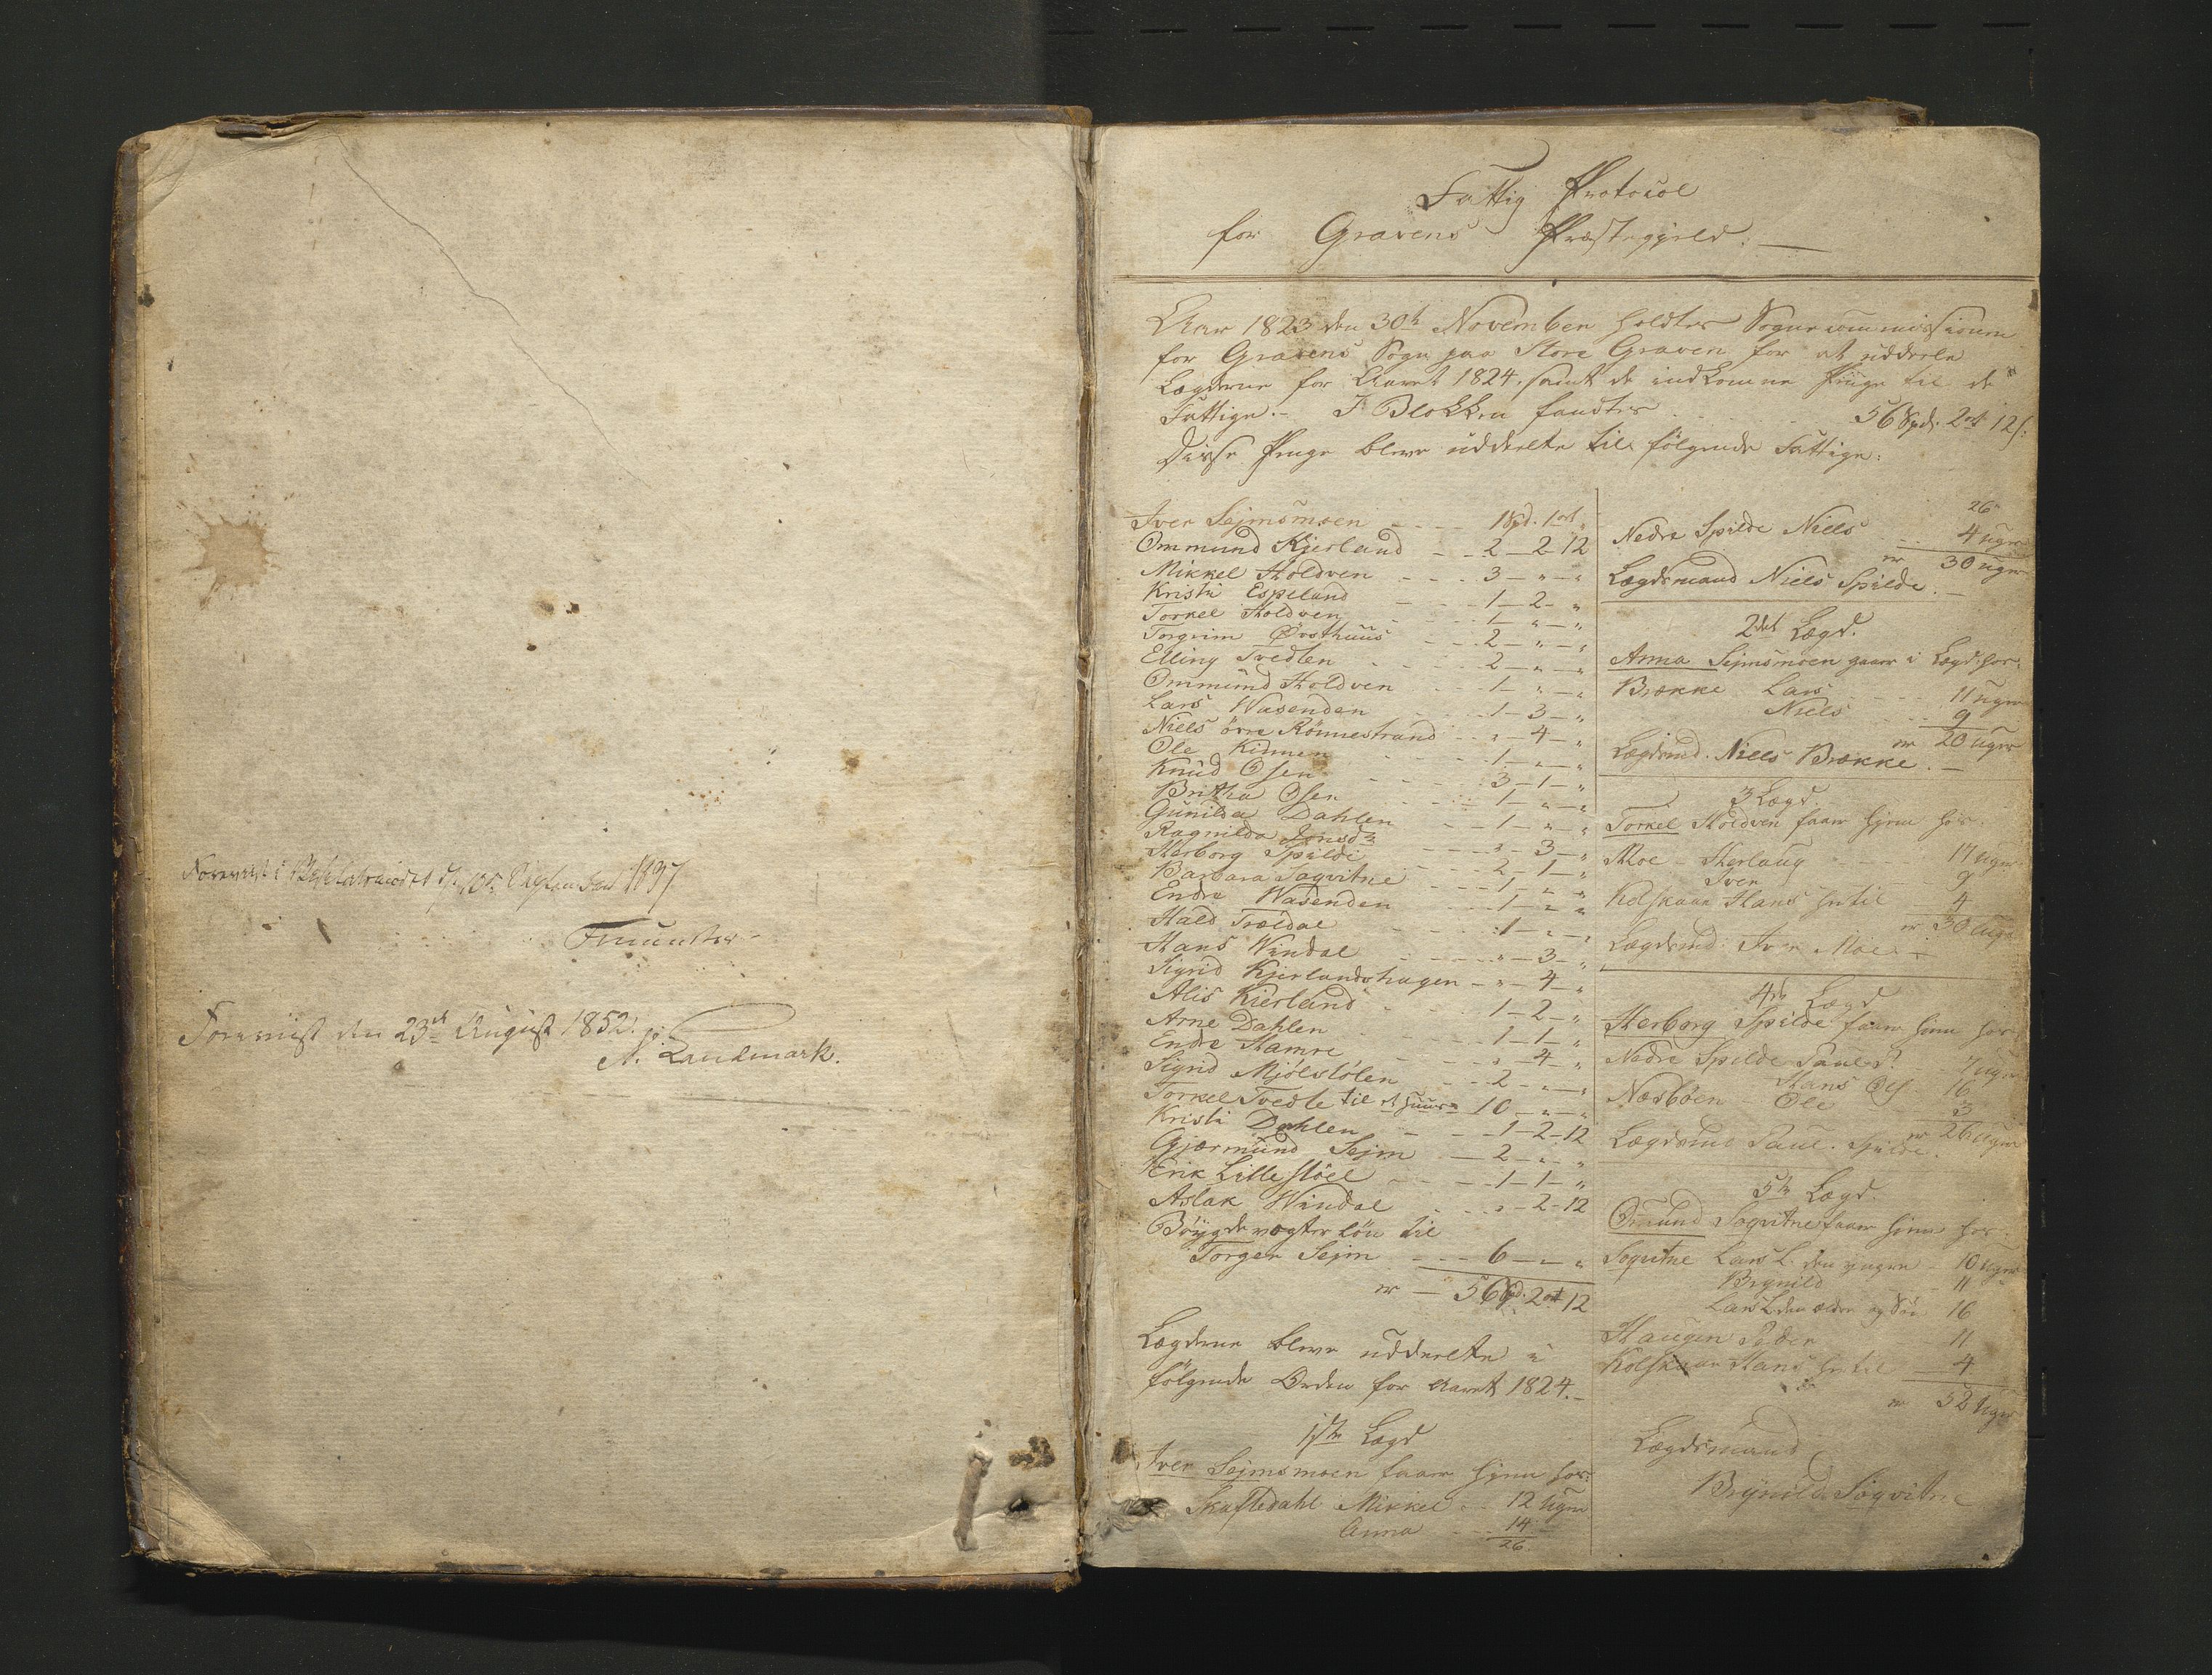 Foreviist den 23de August 1852.
N. Landmark.
Fattig Protocol
for Gravens Præstegjeld.
Aar 1823 den 30te November holdtes Sognecommissionen
for Gravens Sogn paa Store Graven for at uddeele
Lægderne for Aaret 1824, samt de indkomne Penge til de
Fattige. – I Blokken fandtes 56 Spd. 2 ort 12 s.
Disse Penge bleve uddeelte til følgende Fattige:
Iver Sejmsmoen 1 Spd. 1 ort „
Ommund Kjerland 2 – 2 – 12
Mikkel Holdven 3 – „ – „
Kristi Espeland 1 – 2 – „
Torkel Holdven 1 – „ – „
Torgrim Østhuus 2 – „ – „
Elling Tvedten 2 – „ – „
Ommund Holdven 1 – „ – „
Lars Wasenden 1 – 3 – „
Niels övre Rönnestrand „ – 4 – „
Ole Kinnen 1 – „ – „
Knud Osen 3 – 1 – „
Britha Osen 1 – „ – „
Gunilda Dahlen 1 – „ – „
Ragnilda Jonsdr „ – 3 – „
Herborg Spilde 2 – 1 – „
Barbara Sogvitne 1 – „ – „
Endre Wasenden 1 – „ – „
Hald Trældal 1 – „ – „
Hans Windal „ – 3 – „
Sigrid Kjerlandshagen „ – 4 – „
Alis Kierland 1 – 2 – „
Arne Dahlen 1 – 1 – „
Endre Hamre „ – 4 – „
Sigrid Mjölstölen 2 – „ – „
Torkel Tvedte til et Huus 10 – „ – „
Kristi Dahlen 1 – 2 – 12
Gjærmund Sejm 2 – „ – „
Erik Lillestöel 1 – 1 – „
Aslak Windal „ – 2 – 12
Böygdevægter lön til
Torger Sejm 6 – „ – „
er – 56 Spd. 2 ort 12
Lægderne bleve uddeelte i
følgende Orden for Aaret 1824. –
1ste Lægd
Iver Sejmsmoen faaer Hjem hos:
Skaftedahl Mikkel 12 Uger
Anna 14
26
26
Nedre Spilde Niels 4 uger
er 30 uger
Lægdsmand Niels Spilde. –
2det Lægd.
Anna Sejmsmoen gaaer i Lægd hos:
Brække Lars 11 uger
Niels 9
er 20 Uger
Lægdsmd. Niels Brække. –
3 Lægd.
Torkel Holdven faaer Hjem hos.
Moe – Herlaug 17 Uger
Iver 9
Kolskaar Hans hertil 4
er 30 Uger
Lægdsmd: Iver Moe. –
4de Lægd
Herborg Spilde faaer Hjem hos
Nedre Spilde 7 Uger
Hans Ols 16
Næsbøen – Ole 3
er 26 Uger
Lægdsmd Paul Spilde.
5te Lægd.
Omund Sogvitne faaer Hjem hos.
Sogvitne Lars L. den yngre – 10 uger
Brynild 11
Lars L den ældre og Sön 16
Haugen Peder 11
Kolskaar Hans hertil 4
er 52 Uger
Lægdsmand
Brynild Sogvitne